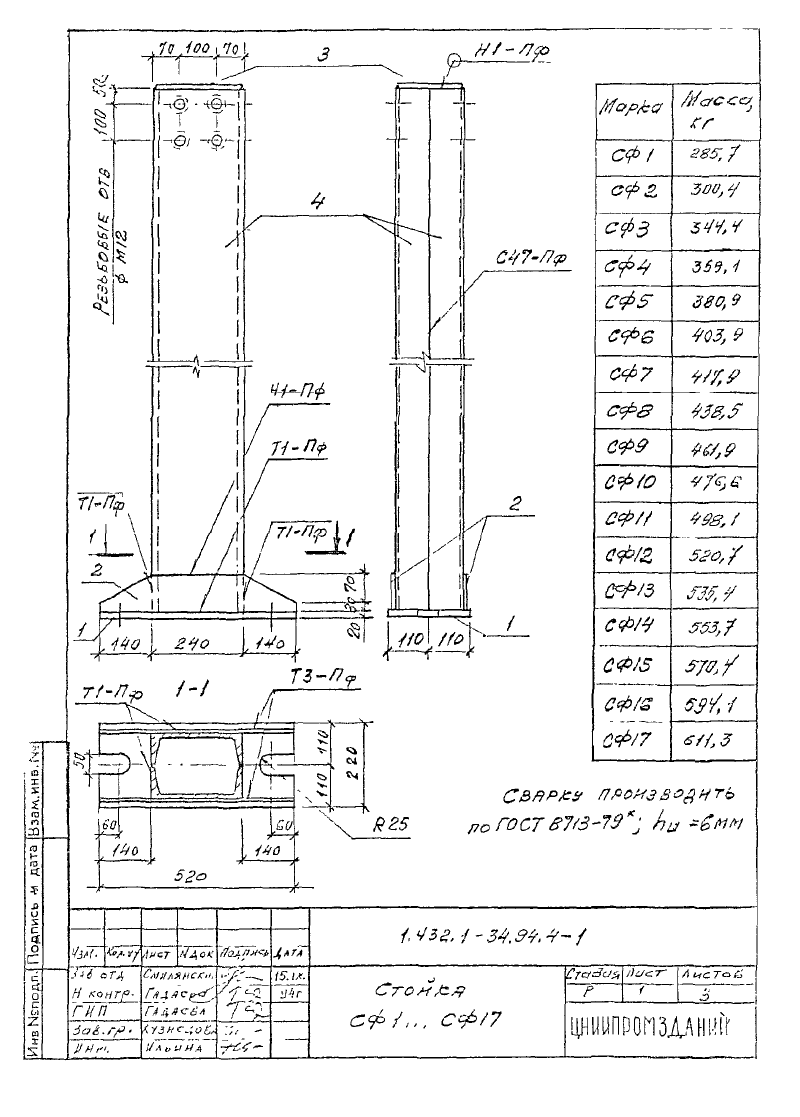 70 100 70
3
Н1-Пф
50
100
Резьбовые отв
ф М12
4
С47-Пф
Н1-Пф
Т1-Пф
Т1-Пф
Т1-Пф
1
1
2
2
1
1
70
30
20
140 240 140
110 110
Т1-Пф
1-1
Т3-Пф
50
110
110
220
60
60
R25
140
140
520
Марка Масса, кг
СФ1 285,7
СФ2 300,4
СФ3 344,4
СФ4 359,1
СФ5 380,9
СФ6 403,9
СФ7 417,9
СФ8 438,5
СФ9 461,9
СФ10 476,6
СФ11 498,1
СФ12 520,7
СФ13 535,4
СФ14 553,7
СФ15 570,4
СФ16 594,1
СФ17 611,3
Сварку производить
по ГОСТ 8713-79*; hш =6мм
Взам.инв.№
Подпись и дата
Инв №подл.
1.432.1-34.94.4-1
Изм. Кол.уч Лист №док Подпись Дата
Зав отд Смилянски 15.IX.
Н контр. Гадаева 94г
ГИП Гадаева
Зав.гр. Кузнецова
Инж. Ильина
Стойка
СФ1... СФ17
Стадия Лист Листов
Р 1 3
ЦНИИПРОМЗДАНИЙ